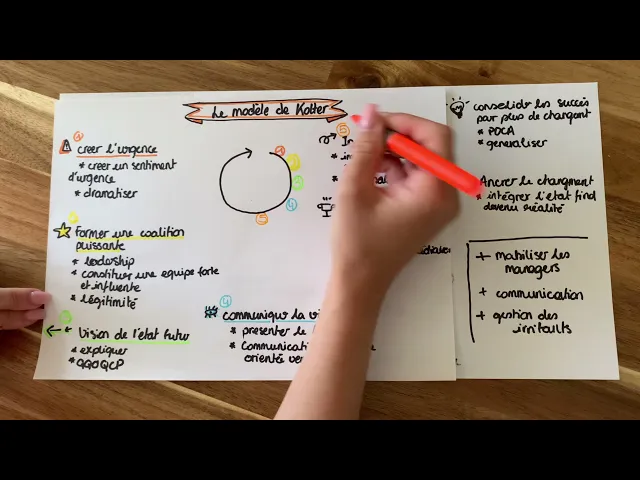 Le modèle de Kotter
1
créer l'urgence
* créer un sentiment
d'urgence
* dramatiser
former une coalition
puissante
* leadership
* constituer une équipe forte
et influente
* légitimité
3
Vision de l'état futur
* expliquer
* QQOQCP
1
2
3
4
5
4
communiquer la vi
* présenter le
* communication
orienté ver
5
In
* im
*
consolider les succès
par plus de changant
* PDCA
* généraliser
Ancrer le changment
* intégrer l'état find
devenu réalité
+ mobiliser les
managers
+ communication
+ gestion des
irritants